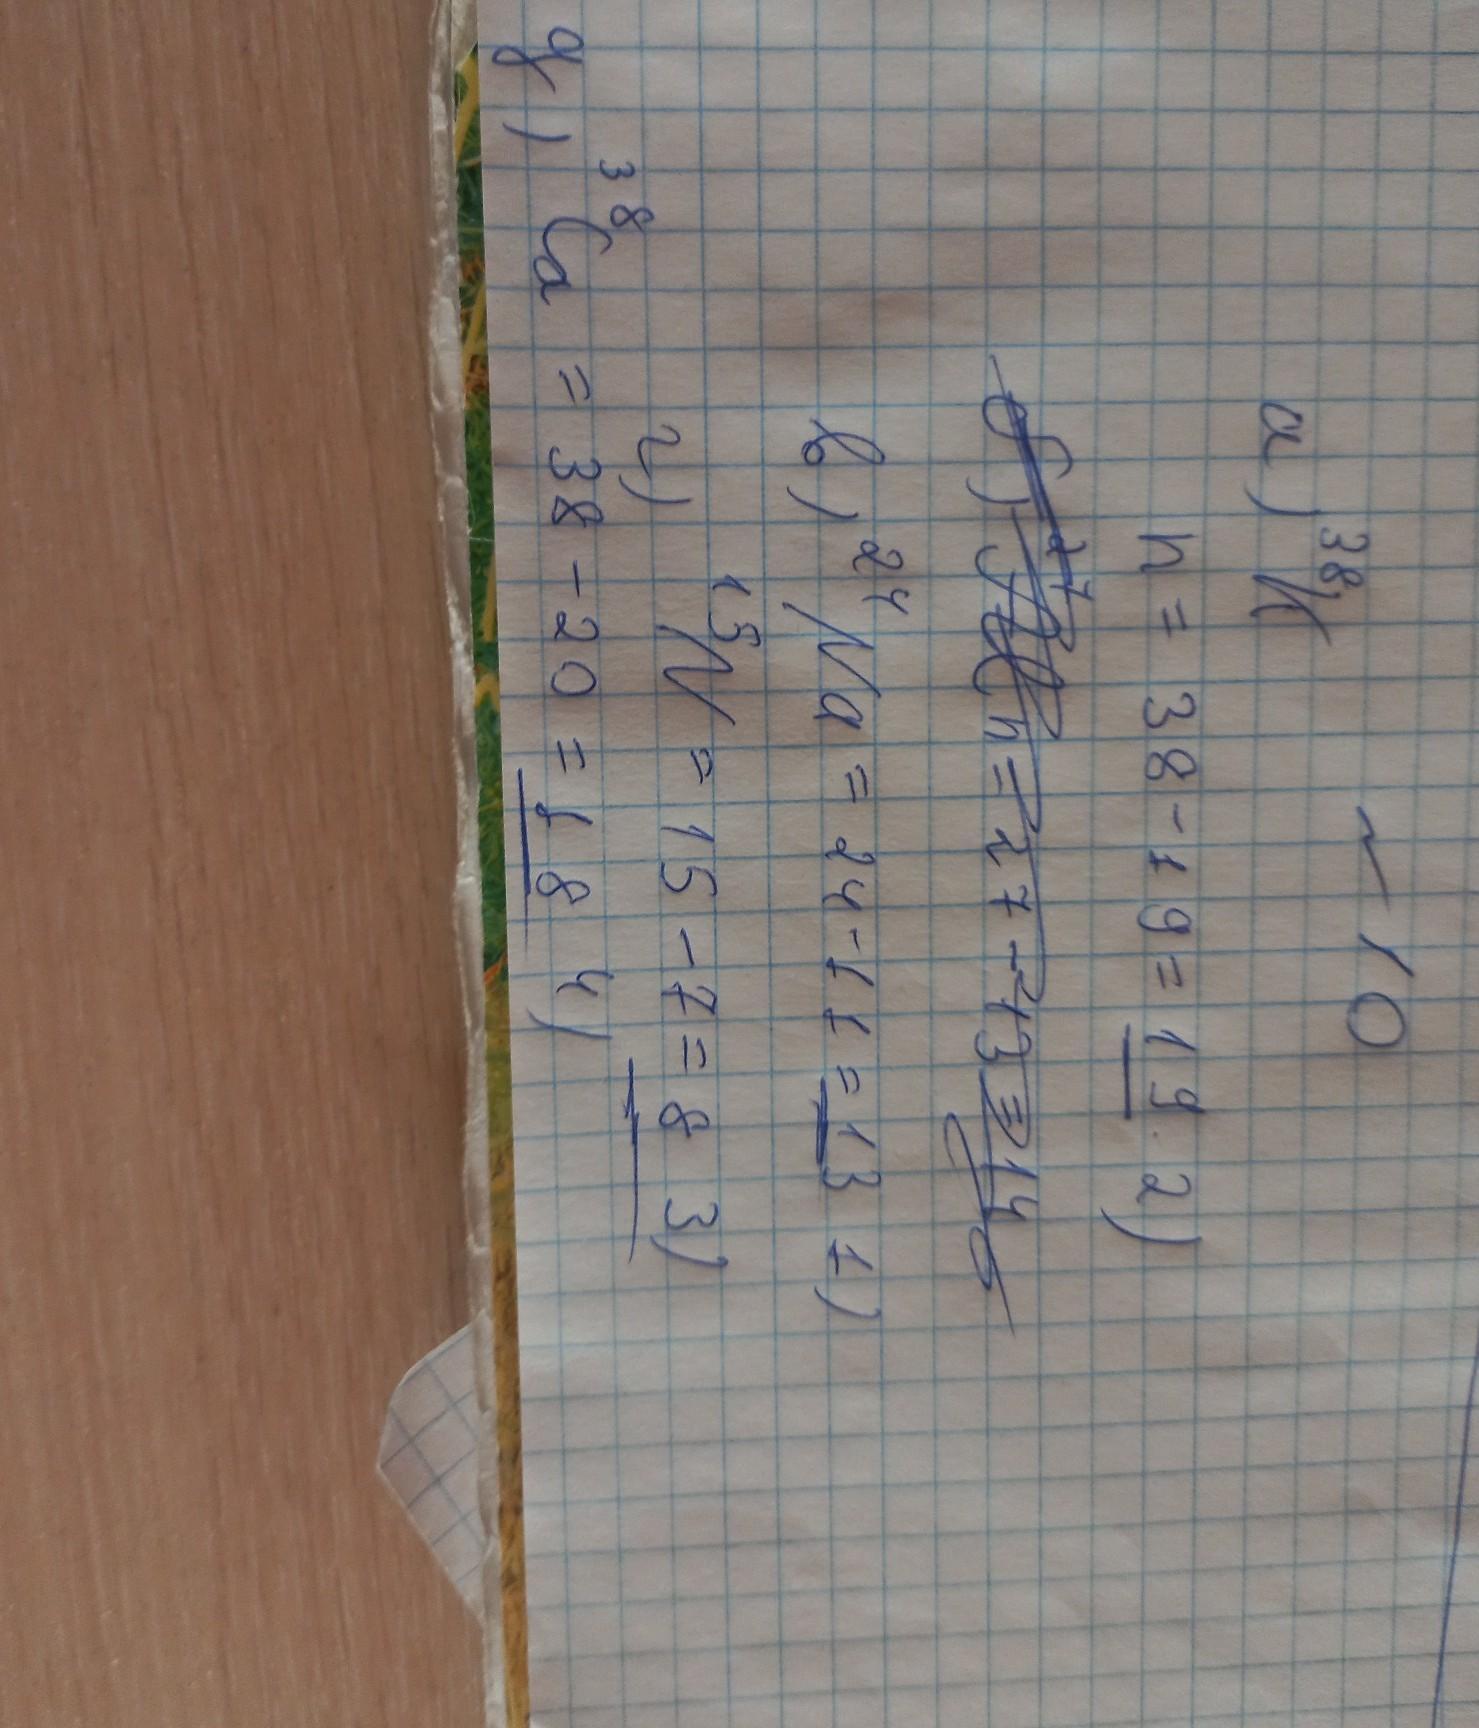 ~ 10
а) ³⁸K
n = 38 - 19 = 19 2)
б) ²⁷Al n = 27 - 13 = 14
в) ²⁴Na = 24 - 11 = 13 1)
г) ¹⁵N = 15 - 7 = 8 3)
д) ³⁸Ca = 38 - 20 = 18 4)